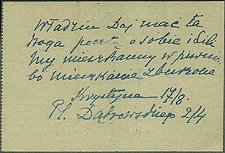 Władziu Daj znać ta
droga pocztą o sobie i Lili
my mieszkamy w piwnicy
bo mieszkanie zburzone
Krystyna 17/8.
Pl. Dąbrowskiego 2/4